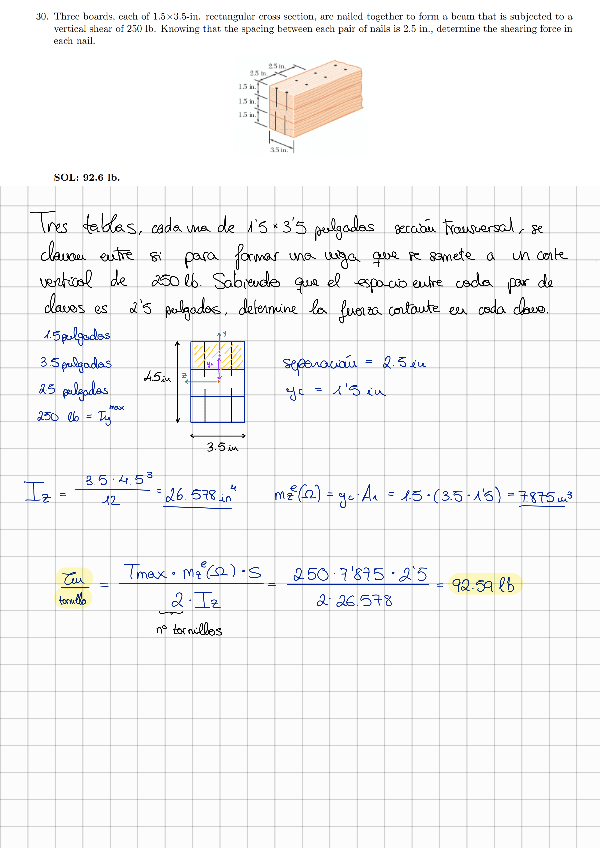 30. Three boards, each of 1.5×3.5-in. rectangular cross section, are nailed together to form a beam that is subjected to a
vertical shear of 250 lb. Knowing that the spacing between each pair of nails is 2.5 in., determine the shearing force in
each nail.
2.5 in.
2.5 in.
1.5 in.
1.5 in.
1.5 in.
3.5 in.
SOL: 92.6 lb.
Tres tablas, cada una de 1'5 × 3'5 pulgadas sección transversal, se
clavan entre si para formar una viga que se somete a un corte
vertical de 250 lb. Sabiendo que el espacio entre cada par de
clavos es 2'5 pulgadas, determine la fuerza cortante en cada clavo.
1.5 pulgadas
3.5 pulgadas
2.5 pulgadas
250 lb = Ty max
4.5 in
y
yc
z
3.5 in
separación = 2.5 in
yc = 1'5 in
Iz = 3.5 · 4.5³ / 12 = 26.578 in⁴
mzᵉ(Ω) = yc · A1 = 1.5 · (3.5 · 1'5) = 7875 in³
tornillo = Tmax · mzᵉ(Ω) · S / 2 · Iz = 250 · 7'875 · 2'5 / 2 · 26.578 = 92.59 lb
nº tornillos